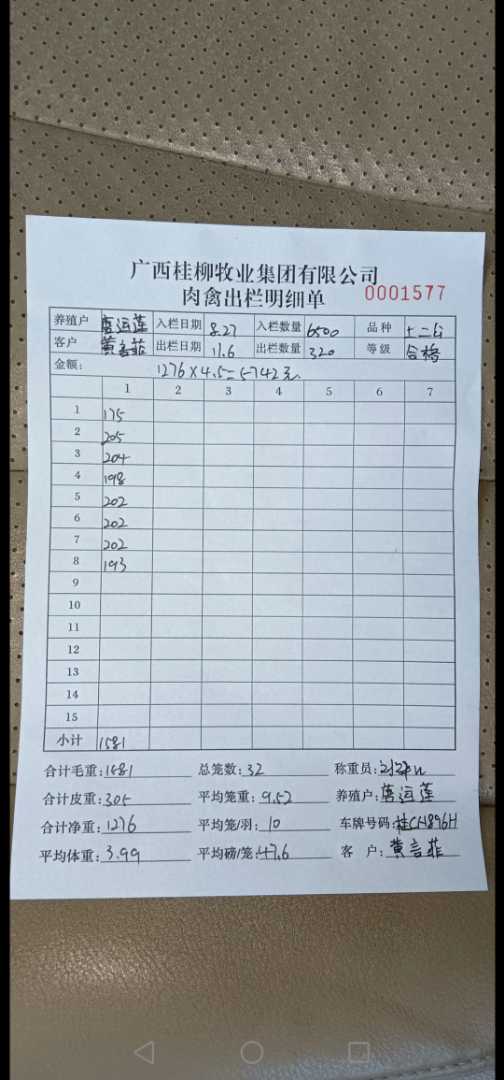 广西桂柳牧业集团有限公司
肉禽出栏明细单 0001577
养殖户 唐运莲 入栏日期 8.27 入栏数量 6500 品种
客户 黄言菲 出栏日期 11.6 出栏数量 320 等级 合格
金额: 1276×4.5=5742元
1 2 3 4 5 6 7
1 175
2 205
3 204
4 198
5 202
6 202
7 202
8 193
9
10
11
12
13
14
15
小计 1581
合计毛重:1581 总笼数:32 称重员:
合计皮重:305 平均笼重:9.52 养殖户:唐运莲
合计净重:1276 平均笼/羽:10 车牌号码:桂CH896H
平均体重:3.99 平均磅/笼:47.6 客户:黄言菲